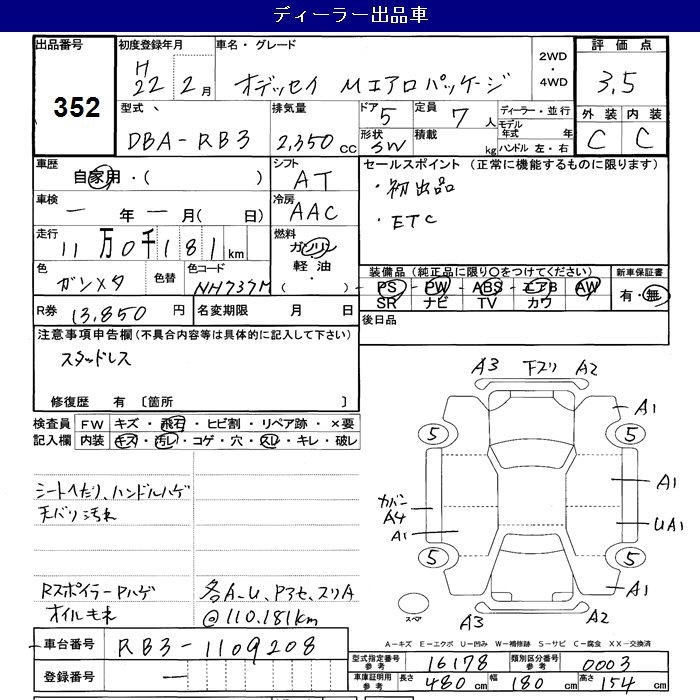 ディーラー出品車
出品番号
352
初度登録年月
H
22 2月
車名・グレード
オデッセイ Mエアロパッケージ
2WD
・
4WD
評価点
3.5
外装 内装
C C
型式
DBA-RB3
排気量
2,350 cc
ドア 5
形状 SW
定員 7人
積載 kg
ディーラー・並行
モデル年式 年
ハンドル 左・右
車歴
自家用・( )
シフト
AT
車検
ー年ー月( 日)
冷房
AAC
走行
11万0千181km
燃料
ガソリン
軽油
・
( )
色
ガンメタ
色替
色コード
NH737M
R券 13,850 円
名変期限 月 日
セールスポイント (正常に機能するものに限ります)
・初出品
・ETC
装備品 (純正品に限り○をつけてください)
PS・PW・ABS・エアB・AW
SR ナビ TV カワ
新車保証書
有・無
後日品
注意事項申告欄(不具合内容等は具体的に記入して下さい)
スタッドレス
修復歴 有 〔箇所 〕
検査員記入欄
FW キズ・飛石・ヒビ割・リペア跡・×要
内装 キズ・汚レ・コゲ・穴・スレ・キレ・破レ
シートへたり、ハンドルハゲ
天バリ汚れ
Rスポイラー Pハゲ
オイルモレ
各A-U、Pヌセ、スリA
@110.181km
A3 下スリ A2
A1
5 5
A1
カバン
A4
UA1
A1
5 5
A1
スペア
A3 A2
A-キズ E-エクボ U-凹み W-補修跡 S-サビ C-腐食 XX-交換済
車台番号
RB3-1109208
登録番号
ー
型式指定番号 参考 16178
類別区分番号 参考 0003
車庫証明用 参考 長さ 480 cm 幅 180 cm 高さ 154 cm